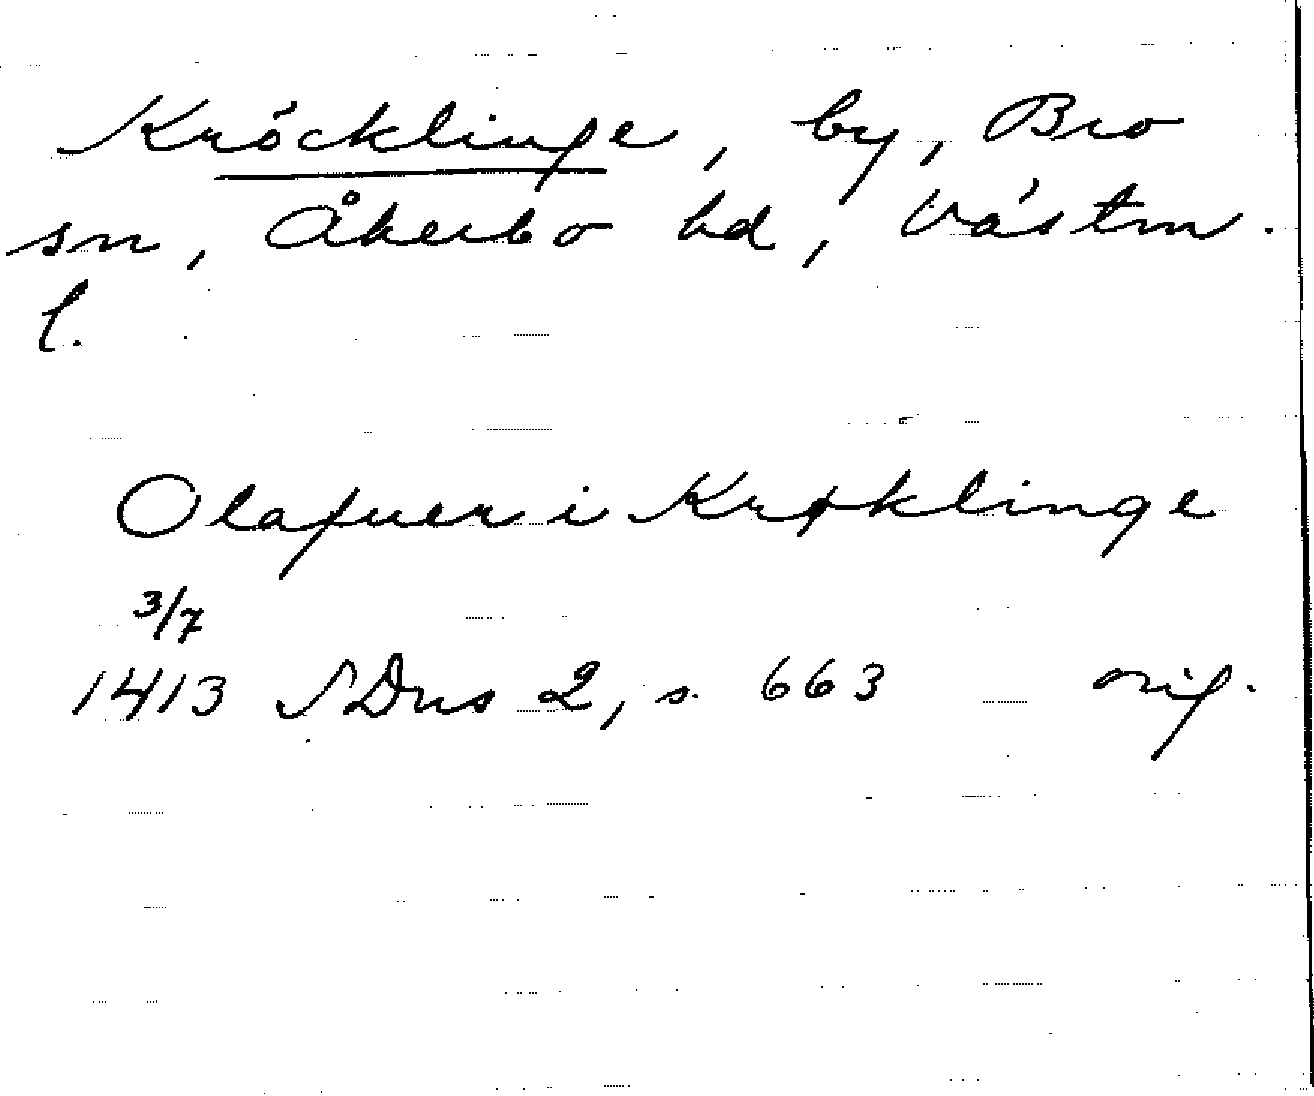 Kröcklinge, by, Bro
sn, Åkerbo hd, Västm.
l.
Olafuer i Krøklinge
3/7
1413 SDns 2, s. 663 orig.